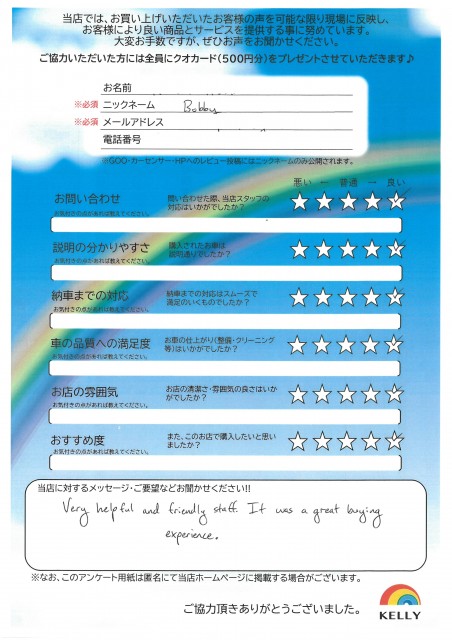 当店では、お買い上げいただいたお客様の声を可能な限り現場に反映し、
お客様により良い商品とサービスを提供する事に努めています。
大変お手数ですが、ぜひお声をお聞かせください。
ご協力いただいた方には全員にクオカード(500円分)をプレゼントさせていただきます♪
お名前
※必須 ニックネーム Bobby
※必須 メールアドレス
電話番号
※GOO・カーセンサー・HPへのレビュー投稿にはニックネームのみ公開されます。
悪い ← 普通 → 良い
お問い合わせ 問い合わせた際、当店スタッフの
お気付きの点があれば教えてください。 対応はいかがでしたか?
説明の分かりやすさ 購入されたお車は
お気付きの点があれば教えてください。 説明通りでしたか?
納車までの対応 納車までの対応はスムーズで
お気付きの点があれば教えてください。 満足のいくものでしたか?
車の品質への満足度 お車の仕上がり(整備・クリーニング
お気付きの点があれば教えてください。 等)はいかがでしたか?
お店の雰囲気 お店の清潔さ・雰囲気の良さはいか
お気付きの点があれば教えてください。 がでしたか?
おすすめ度 また、このお店で購入したいと思い
お気付きの点があれば教えてください。 ましたか?
当店に対するメッセージ・ご要望などお聞かせください!!
Very helpful and friendly staff. It was a great buying
experience.
※なお、このアンケート用紙は匿名にて当店ホームページに掲載する場合がございます。
ご協力頂きありがとうございました。
KELLY